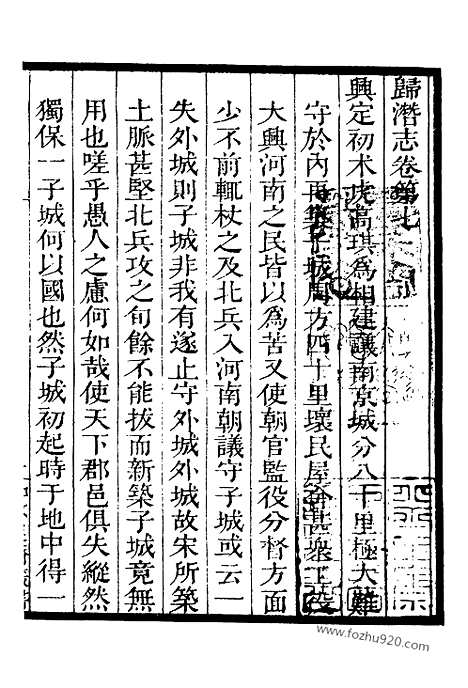 歸潛志卷第七
興定初朮虎高琪為相建議南京城分八十里極大難
守於內再築子城周方四十里壞民屋舍甚眾工役
大興河南之民皆以為苦又使朝官監役分督方面
少不前輒杖之及北兵入河南朝議守子城或云一
失外城則子城非我有遂止守外城外城故宋所築
土脈甚堅北兵攻之旬餘不能拔而新築子城竟無
用也嗟乎愚人之慮何如哉使天下郡邑俱失縱然
獨保一子城何以國也然子城初起時于地中得一
www.fozhu920.com